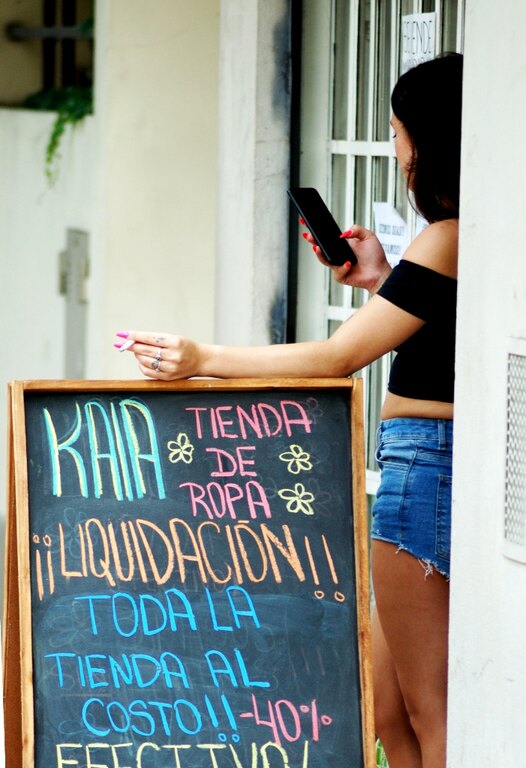 KAIA TIENDA
DE
ROPA
¡¡LIQUIDACIÓN!!
TODA LA
TIENDA AL
COSTO!! -40%
EFECTIVO!